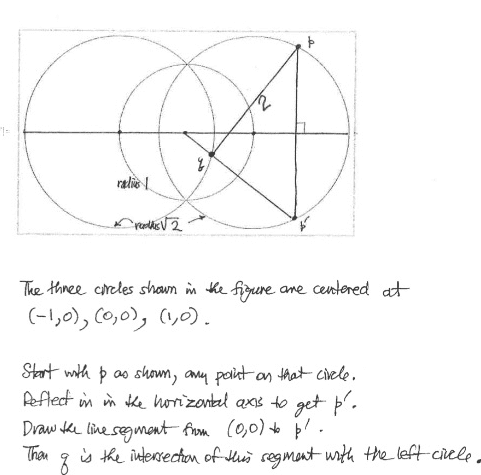 p
2
q
radius 1
radius √2
p'
The three circles shown in the figure are centered at
(-1,0), (0,0), (1,0).
Start with p as shown, any point on that circle.
Reflect in in the horizontal axis to get p'.
Draw the line segment from (0,0) to p'.
Then q is the intersection of this segment with the left circle.